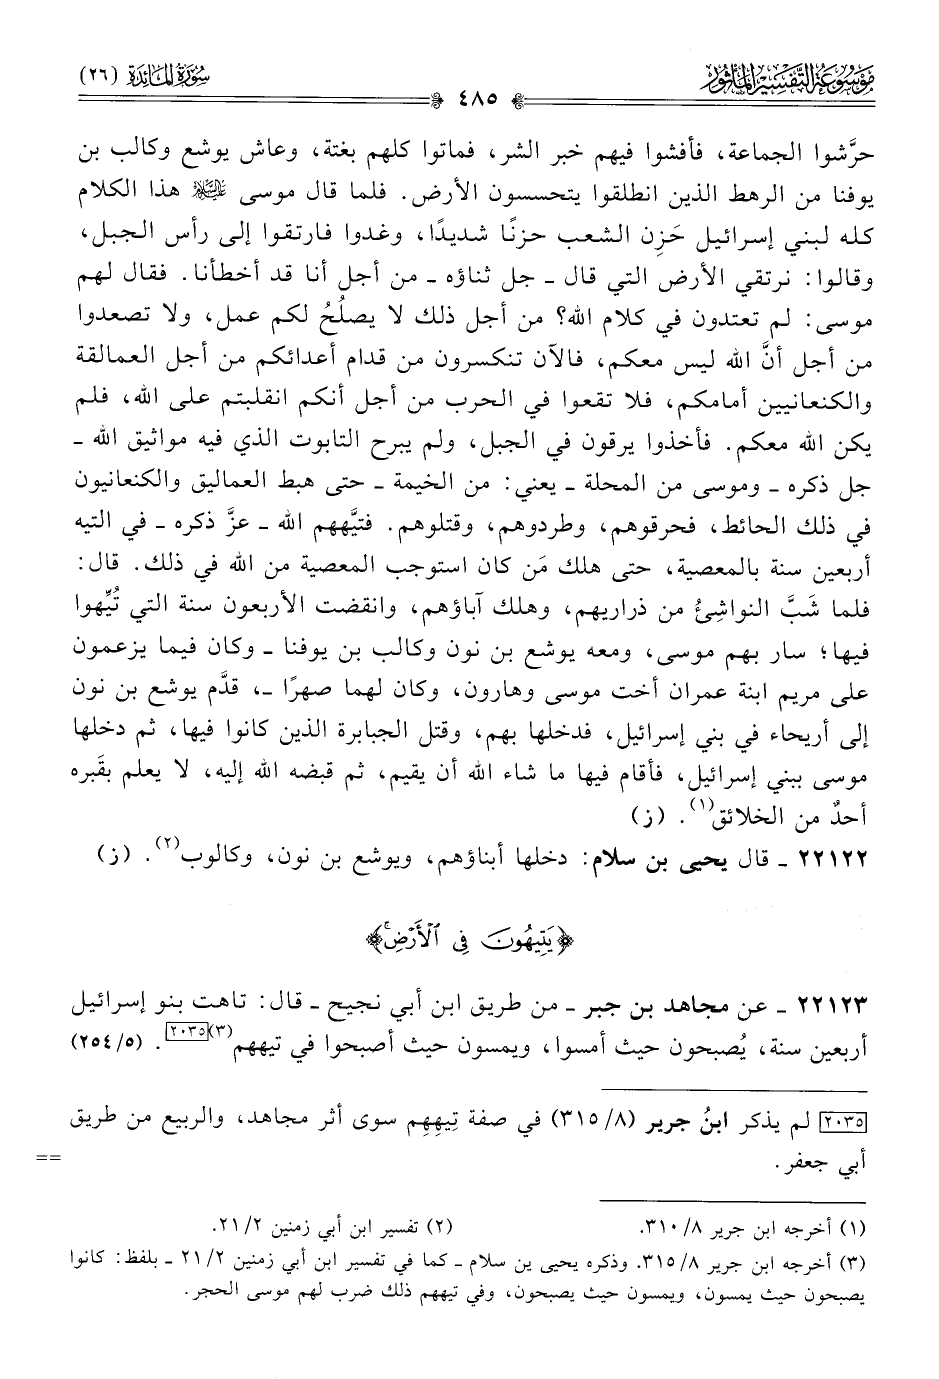 موسوعة التفسير المأثور
٤٨٥
سورة المائدة (٢٦)
حرَّشوا الجماعة، فأفشوا فيهم خبر الشر، فماتوا كلهم بغتة، وعاش يوشع وكالب بن
يوفنا من الرهط الذين انطلقوا يتحسسون الأرض. فلما قال موسى عليه السلام هذا الكلام
كله لبني إسرائيل حَزِن الشعب حزنًا شديدًا، وغدوا فارتقوا إلى رأس الجبل،
وقالوا: نرتقي الأرض التي قال ـ جل ثناؤه ـ من أجل أنا قد أخطأنا. فقال لهم
موسى: لم تعتدون في كلام الله؟ من أجل ذلك لا يصلُحُ لكم عمل، ولا تصعدوا
من أجل أنَّ الله ليس معكم، فالآن تنكسرون من قدام أعدائكم من أجل العمالقة
والكنعانيين أمامكم، فلا تقعوا في الحرب من أجل أنكم انقلبتم على الله، فلم
يكن الله معكم. فأخذوا يرقون في الجبل، ولم يبرح التابوت الذي فيه مواثيق الله ـ
جل ذكره ـ وموسى من المحلة ـ يعني: من الخيمة ـ حتى هبط العماليق والكنعانيون
في ذلك الحائط، فحرقوهم، وطردوهم، وقتلوهم. فتيَّههم الله ـ عزَّ ذكره ـ في التيه
أربعين سنة بالمعصية، حتى هلك مَن كان استوجب المعصية من الله في ذلك. قال:
فلما شَبَّ النواشِئُ من ذراريهم، وهلك آباؤهم، وانقضت الأربعون سنة التي تُيِّهوا
فيها؛ سار بهم موسى، ومعه يوشع بن نون وكالب بن يوفنا ـ وكان فيما يزعمون
على مريم ابنة عمران أخت موسى وهارون، وكان لهما صهرًا ـ، قدَّم يوشع بن نون
إلى أريحاء في بني إسرائيل، فدخلها بهم، وقتل الجبابرة الذين كانوا فيها، ثم دخلها
موسى ببني إسرائيل، فأقام فيها ما شاء الله أن يقيم، ثم قبضه الله إليه، لا يعلم بقَبره
أحدٌ من الخلائق(١). (ز)
٢٢١٢٢ ـ قال يحيى بن سلام: دخلها أبناؤهم، ويوشع بن نون، وكالوب(٢). (ز)
﴿يَتِيهُونَ فِي ٱلْأَرْضِۚ﴾
٢٢١٢٣ ـ عن مجاهد بن جبر ـ من طريق ابن أبي نجيح ـ قال: تاهت بنو إسرائيل
أربعين سنة، يُصبحون حيث أمسوا، ويمسون حيث أصبحوا في تيههم(٣)[٢٠٣٥]. (٢٥٤/٥)
[٢٠٣٥] لم يذكر ابنُ جرير (٣١٥/٨) في صفة تِيهِهِم سوى أثر مجاهد، والربيع من طريق
أبي جعفر.
==
(١) أخرجه ابن جرير ٣١٠/٨.
(٢) تفسير ابن أبي زمنين ٢١/٢.
(٣) أخرجه ابن جرير ٣١٥/٨. وذكره يحيى ين سلام ـ كما في تفسير ابن أبي زمنين ٢١/٢ ـ بلفظ: كانوا
يصبحون حيث يمسون، ويمسون حيث يصبحون، وفي تيههم ذلك ضرب لهم موسى الحجر.